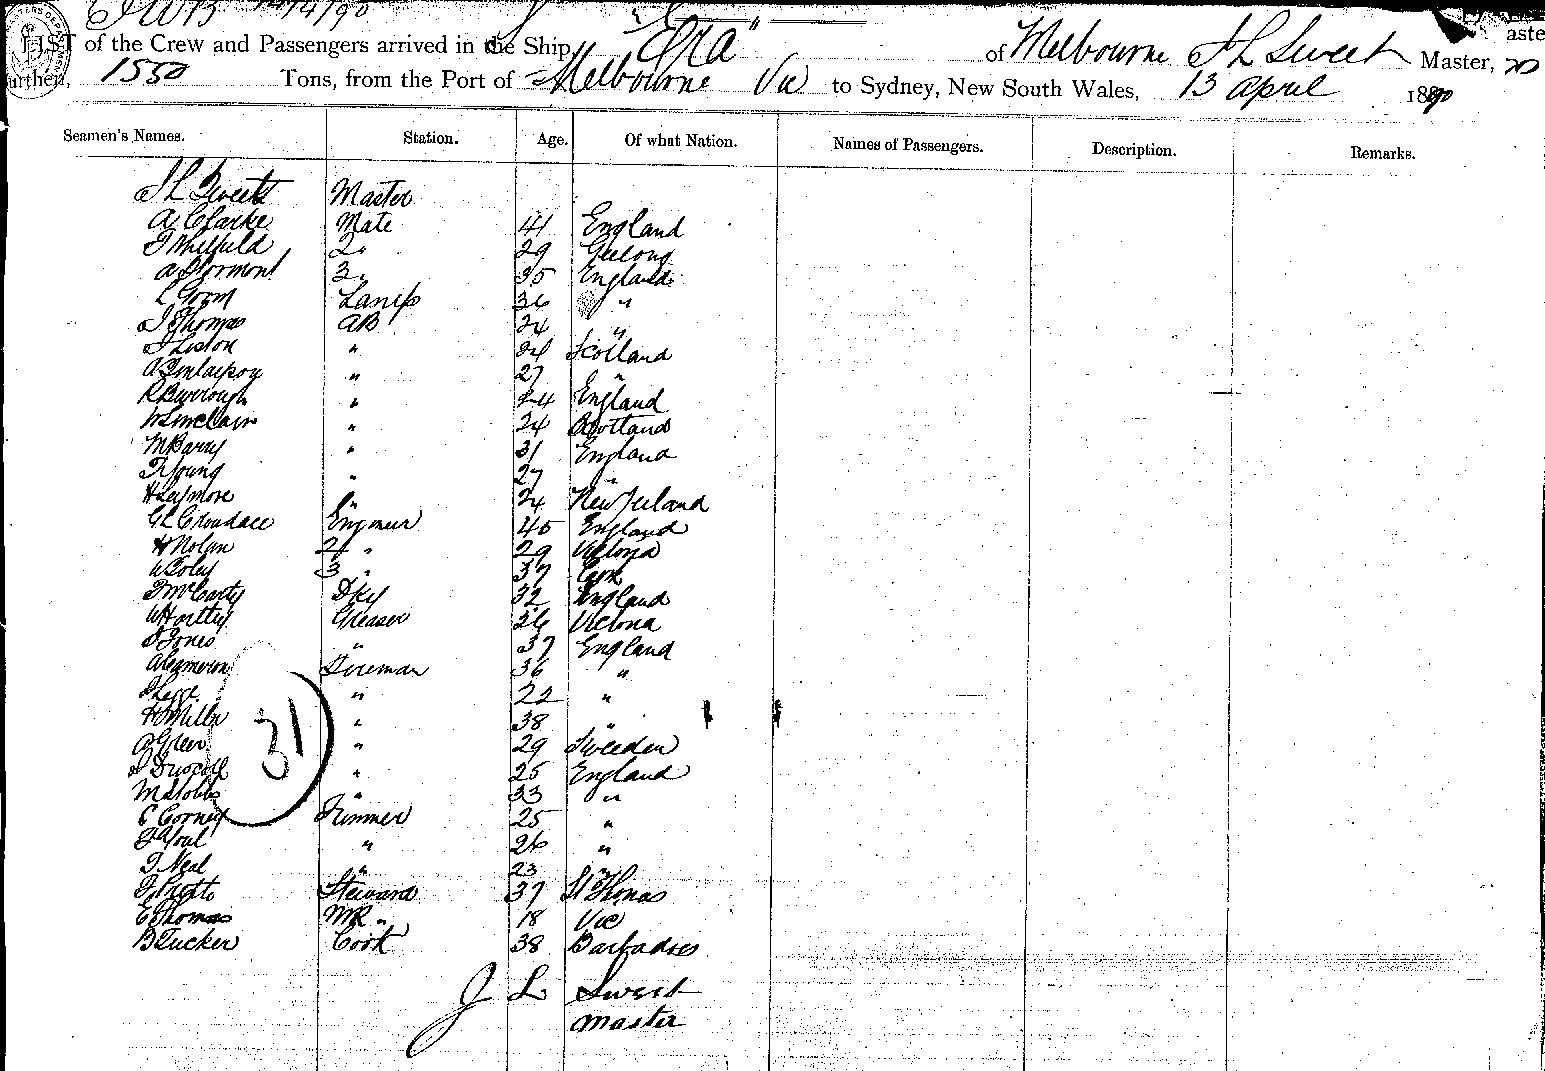 14/4/90
"Era"
LIST of the Crew and Passengers arrived in the Ship of Melbourne J L Sweet Master,
Burthen, 1550 Tons, from the Port of Melbourne Vic to Sydney, New South Wales, 13 April 1890
Seamen's Names. Station. Age. Of what Nation. Names of Passengers. Description. Remarks.
J L Sweet Master
A Clarke Mate 41 England
2 " 29 Geelong
3 " 35 England
Lamps 36 "
J Thomps AB 24 "
J Liston " 24 Scotland
" 27 "
R Burrough " 24 England
W Sinclair " 24 Scotland
M Barry " 31 England
T Young " 27 "
H Leymore " 24 New Zeland
G L Croudace Engineer 40 England
H Nolan 2 " 29 Victoria
W Foley 3 " 37 Cork
J McCarty Dky 32 England
W Hartley Greaser 26 Victoria
J Jones " 37 England
A Cameron Fireman 36 "
J Legge " 22 "
H Miller " 38 "
A Green " 29 Sweden
J Driscoll " 25 England
M Stobbs " 33 "
C Corney Trimmer 25 "
J Youl " 26 "
T Neal " 23 "
J Pratto Steward 37 St Thomas
E Thomas MR " 18 Vic
B Tucker Cook 38 Barbadoes
31
J L Sweet
Master